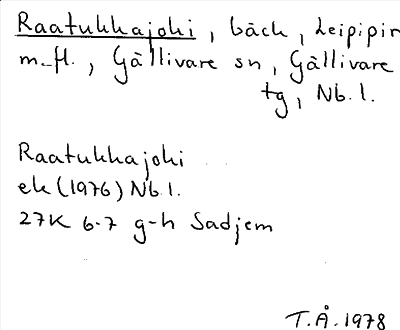 Raatukkajoki, bäck, Leipipir
m.fl., Gällivare sn, Gällivare
tg, Nb.l.
Raatukkajoki
ek (1976) Nb.l.
27K 6-7 g-h Sadjem
T.Å. 1978